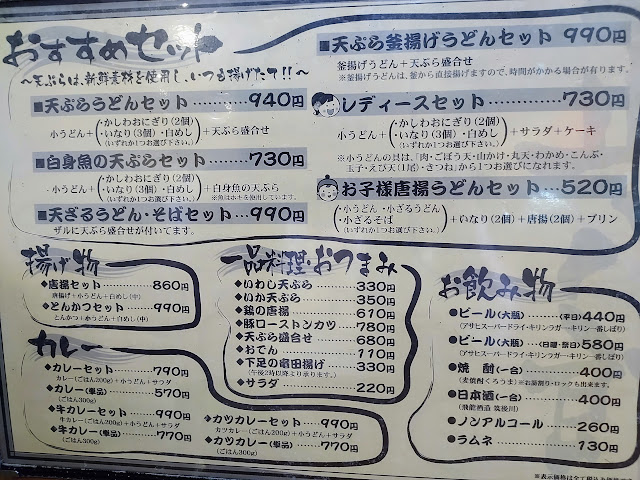 おすすめセット
〜天ぷらは、新鮮素材を使用し、いつも揚げたて!!〜
■天ぷらうどんセット………940円
小うどん+(・かしわおにぎり(2個)
・いなり(3個)・白めし
(いずれか1つお選び下さい。))+天ぷら盛合せ
■白身魚の天ぷらセット………730円
小うどん+(・かしわおにぎり(2個)
・いなり(3個)・白めし
(いずれか1つお選び下さい。))+白身魚の天ぷら
※魚はホキを使用しています。
■天ざるうどん・そばセット…990円
ザルに天ぷら盛合せが付いてます。
■天ぷら釜揚げうどんセット 990円
釜揚げうどん+天ぷら盛合せ
※釜揚げうどんは、釜から直接揚げますので、時間がかかる場合が有ります。
レディースセット………730円
小うどん+(・かしわおにぎり(2個)
・いなり(3個)・白めし
(いずれか1つお選び下さい。))+サラダ+ケーキ
※小うどんの具は、「肉・ごぼう天・山かけ・丸天・わかめ・こんぶ・
玉子・えび天(1尾)・きつね」から1つお選びになれます。
お子様唐揚うどんセット…520円
(・小うどん・小ざるうどん
・小ざるそば
(いずれか1つお選び下さい。))+いなり(2個)+唐揚(2個)+プリン
揚げ物
◆唐揚セット………860円
唐揚げ+小うどん+白めし(中)
◆とんかつセット………990円
とんかつ+小うどん+白めし(中)
カレー
◆カレーセット………790円
カレー(ごはん200g)+小うどん+サラダ
◆カレー(単品)………570円
(ごはん300g)
◆牛カレーセット………990円
牛カレー(ごはん200g)+小うどん+サラダ
◆牛カレー(単品)………770円
(ごはん300g)
◆カツカレーセット………990円
カツカレー(ごはん200g)+小うどん+サラダ
◆カツカレー(単品)………770円
(ごはん300g)
一品料理・おつまみ
◆いわし天ぷら………330円
◆いか天ぷら………350円
◆鶏の唐揚………610円
◆豚ローストンカツ………780円
◆天ぷら盛合せ………680円
◆おでん………110円
◆下足の竜田揚げ………330円
(午後2時以降より承ります。)
◆サラダ………220円
お飲み物
●ビール(大瓶)…(平日)440円
(アサヒスーパードライ・キリンラガー・キリン一番しぼり)
●ビール(大瓶)…(日曜・祭日)580円
(アサヒスーパードライ・キリンラガー・キリン一番しぼり)
●焼 酎(一合)………400円
(麦焼酎くろうま)※お湯割り・ロックも出来ます。
●日本酒(一合)………400円
(飛龍酒造 筑後川)
●ノンアルコール………260円
●ラムネ………130円
※表示価格は全て税込み価格